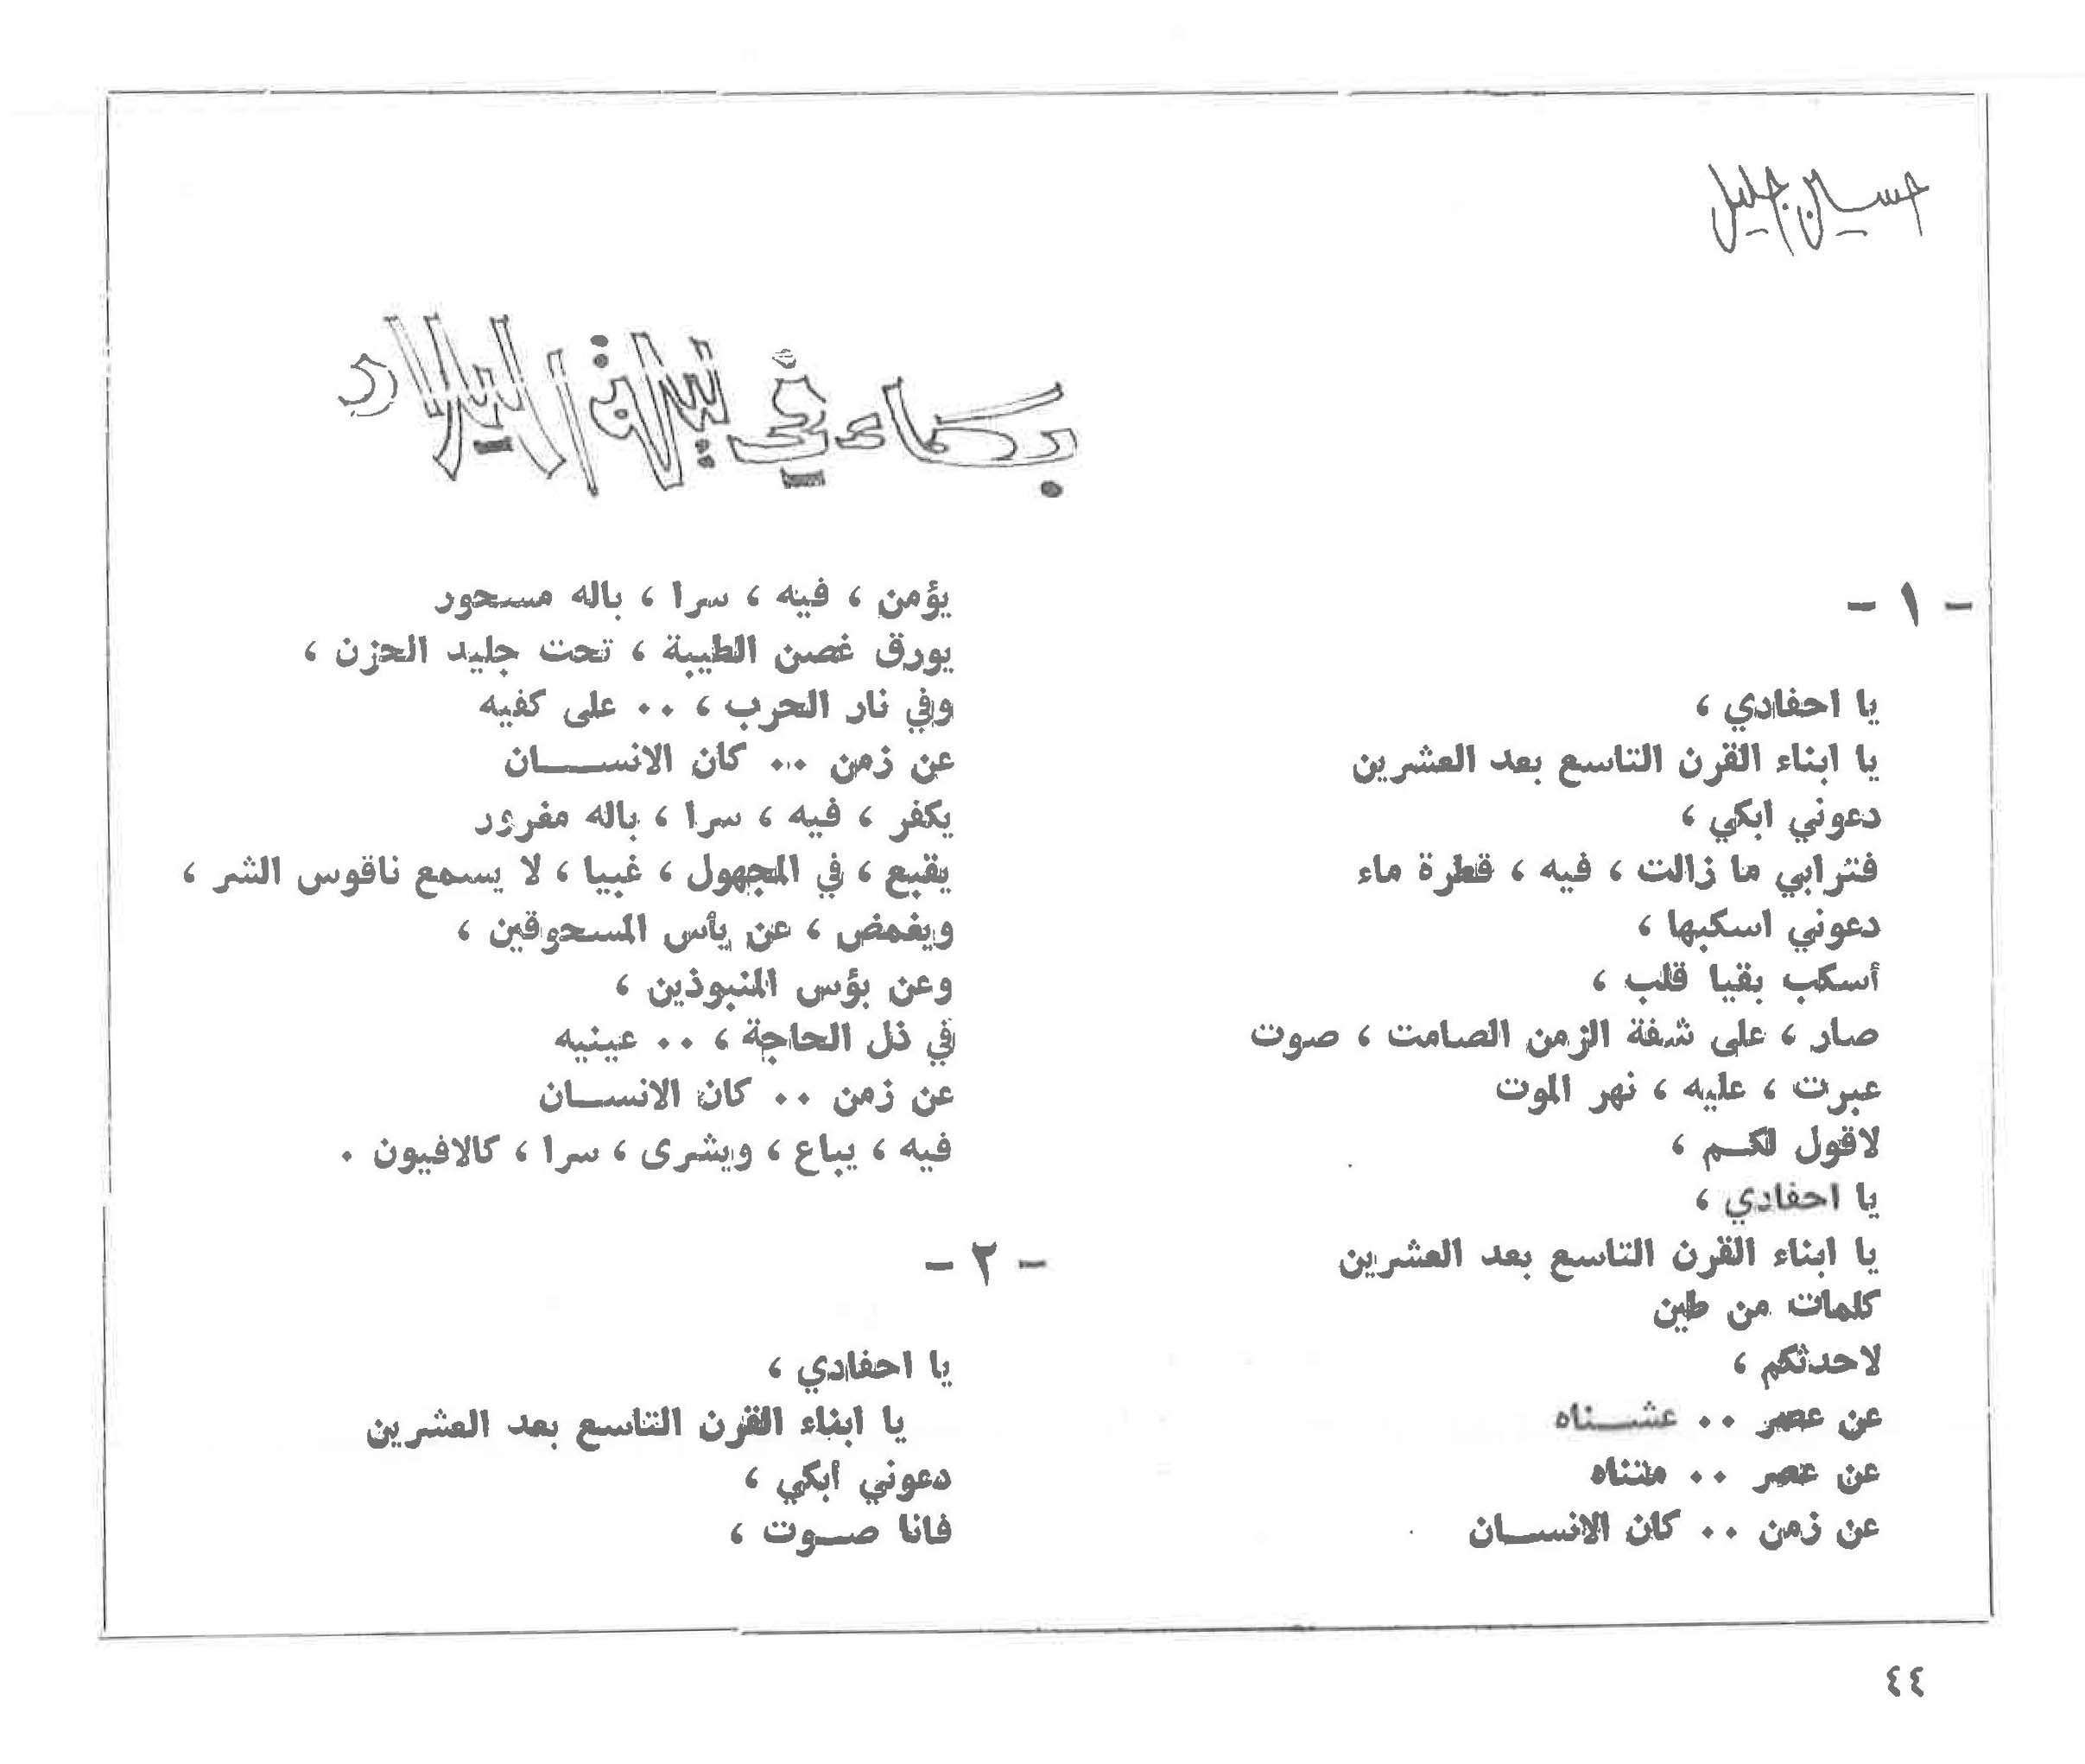 حسين جليل
بكاء في ليلة الميلاد
- ١ -
يا احفادي ،
يا ابناء القرن التاسع بعد العشرين
دعوني ابكي ،
فترابي ما زالت ، فيه ، قطرة ماء
دعوني اسكبها ،
أسكب بقيا قلب ،
صار ، على شفة الزمن الصامت ، صوت
عبرت ، عليه ، نهر الموت
لاقول لكم ،
يا احفادي ،
يا ابناء القرن التاسع بعد العشرين
كلمات من طين
لاحدثكم ،
عن عصر ٠٠ عشناه
عن عصر ٠٠ متناه
عن زمن ٠٠ كان الانسان
يؤمن ، فيه ، سرا ، باله مسحور
يورق غصن الطيبة ، تحت جليد الحزن ،
وفي نار الحرب ، ٠٠ على كفيه
عن زمن ٠٠ كان الانسان
يكفر ، فيه ، سرا ، باله مغرور
يقبع ، في المجهول ، غبيا ، لا يسمع ناقوس الشر ،
ويغمض ، عن يأس المسحوقين ،
وعن بؤس المنبوذين ،
في ذل الحاجة ، ٠٠ عينيه
عن زمن ٠٠ كان الانسان
فيه ، يباع ، ويشرى ، سرا ، كالافيون ٠
- ٢ -
يا احفادي ،
يا ابناء القرن التاسع بعد العشرين
دعوني أبكي ،
فانا صوت ،
٤٤